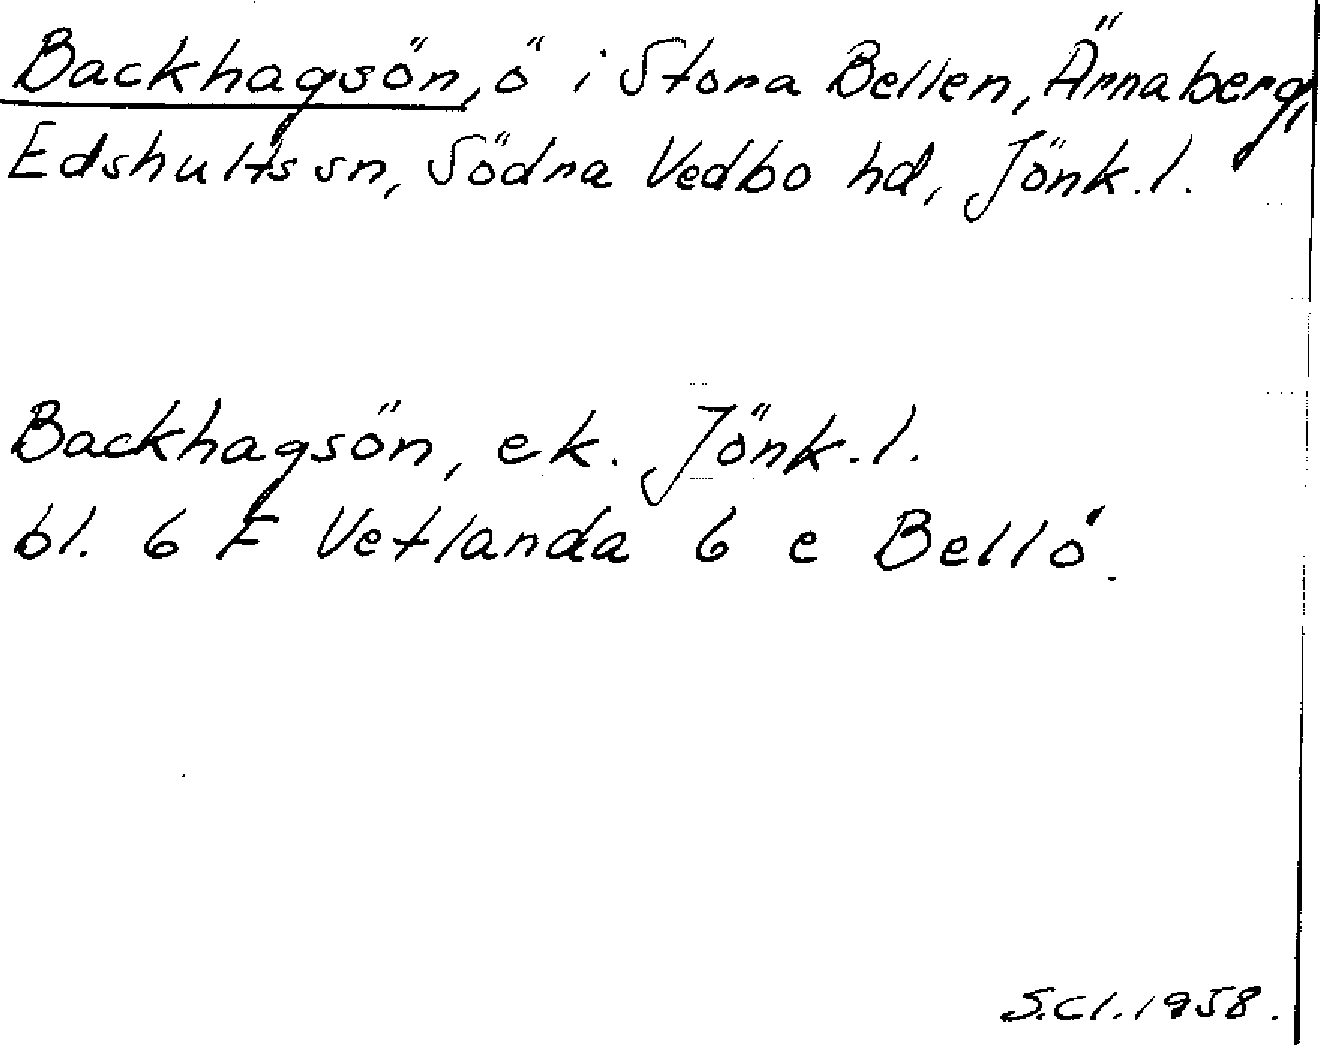 Backhagsön, ö i Stora Bellen, Ärnaberg,
Edshults sn, Södra Vedbo hd, Jönk.l.
Backhagsön, ek. Jönk.l.
bl. 6 F Vetlanda 6 e Bellö.
S.Cl.1958.